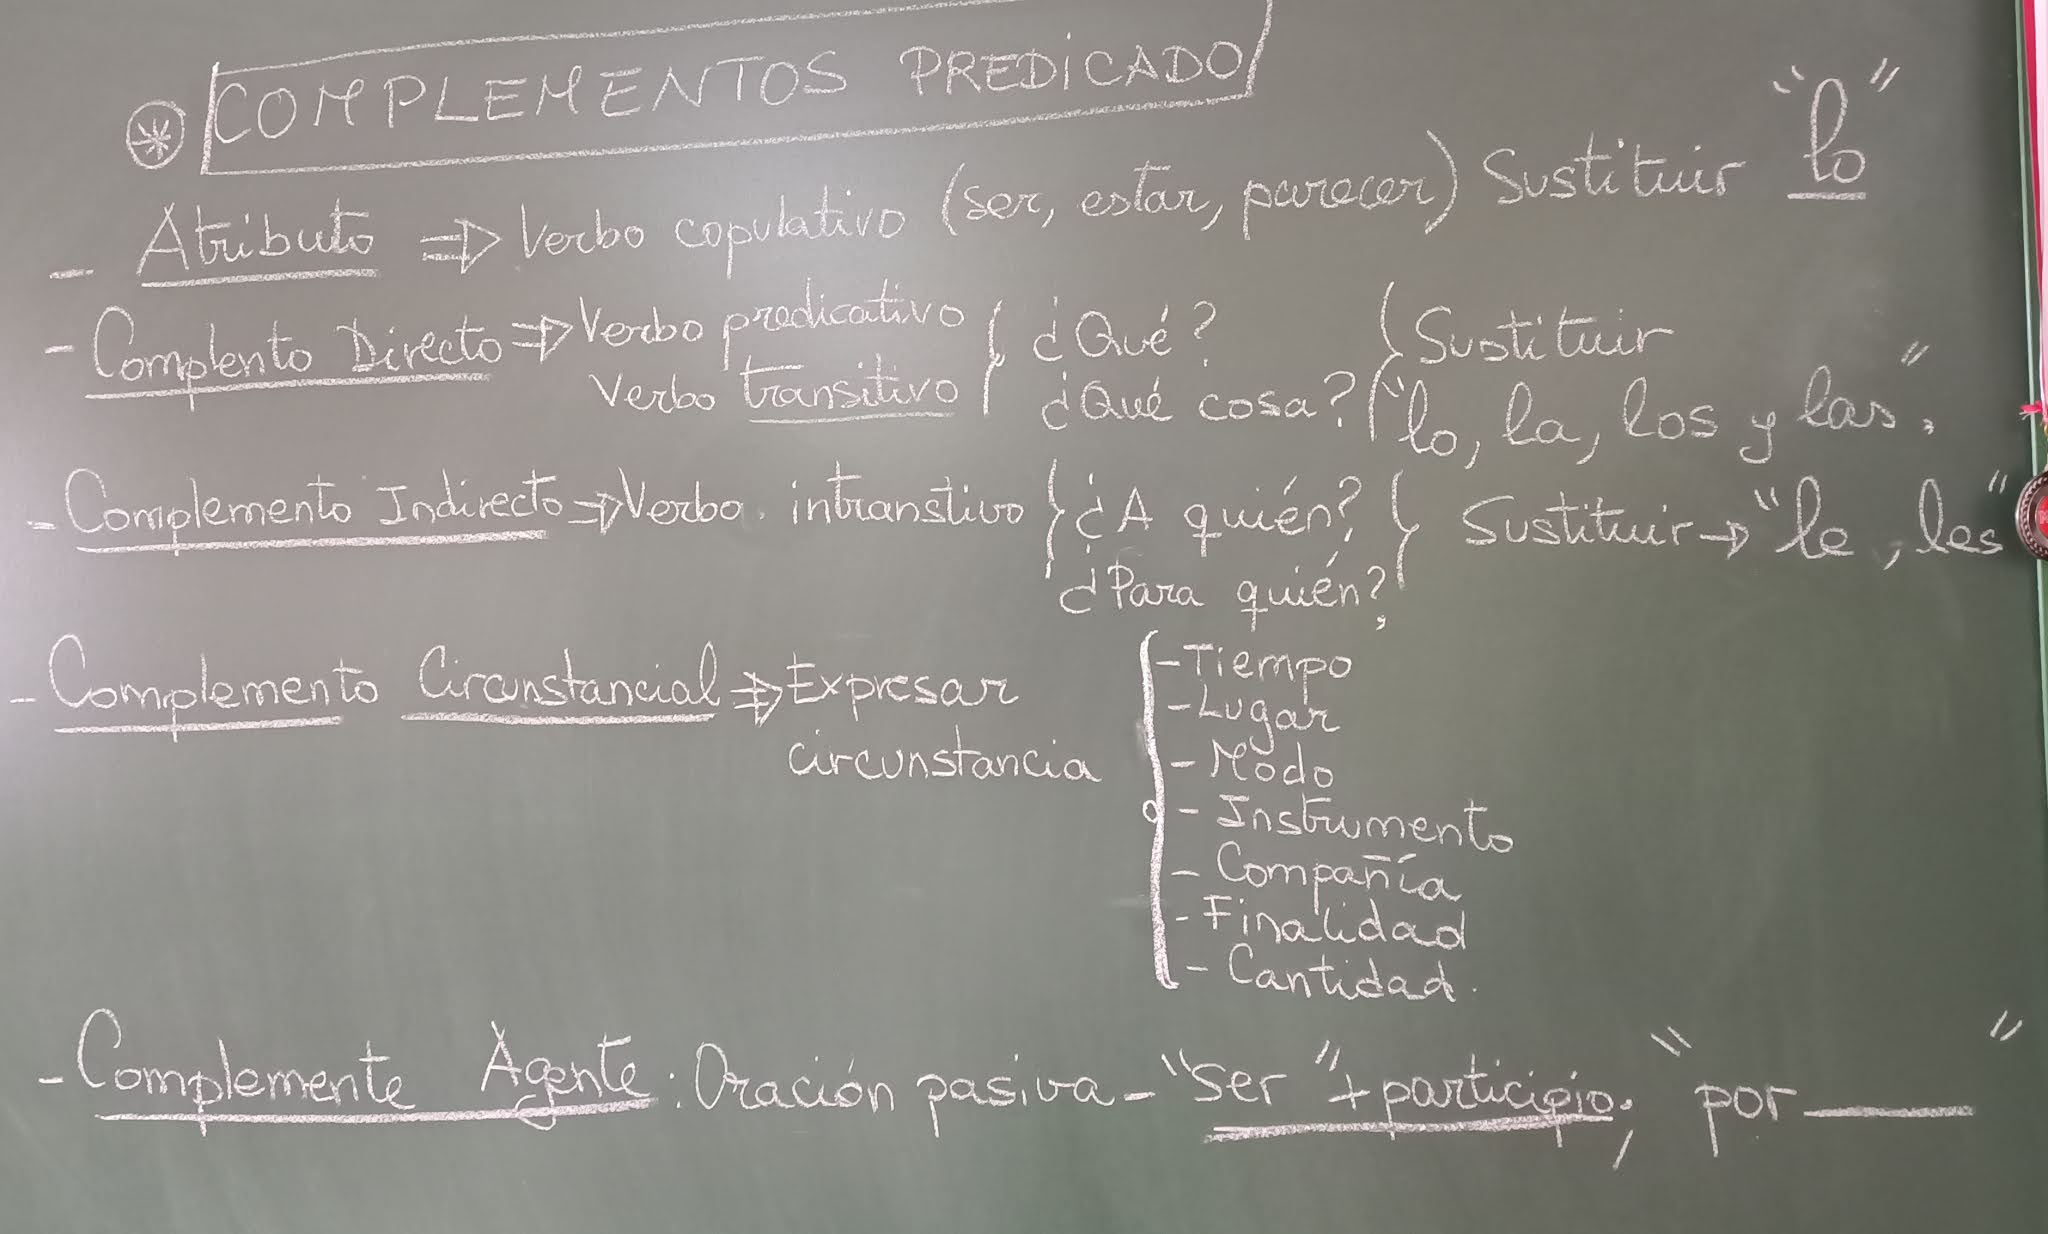 * COMPLEMENTOS PREDICADO
- Atributo => Verbo copulativo (ser, estar, parecer) Sustituir "lo"
- Complento Directo => Verbo predicativo { ¿Qué? { Sustituir
Verbo transitivo ¿Qué cosa? "lo, la, los y las".
- Complemento Indirecto => Verbo. intranstivo } ¿A quién? } Sustituir -> "le, les"
¿Para quién?
- Complemento Circunstancial => Expresar
circunstancia
- Tiempo
- Lugar
- Modo
- Instrumento
- Compañía
- Finalidad
- Cantidad.
- Complemente Agente: Oración pasiva - "ser" + participio; "por ______"